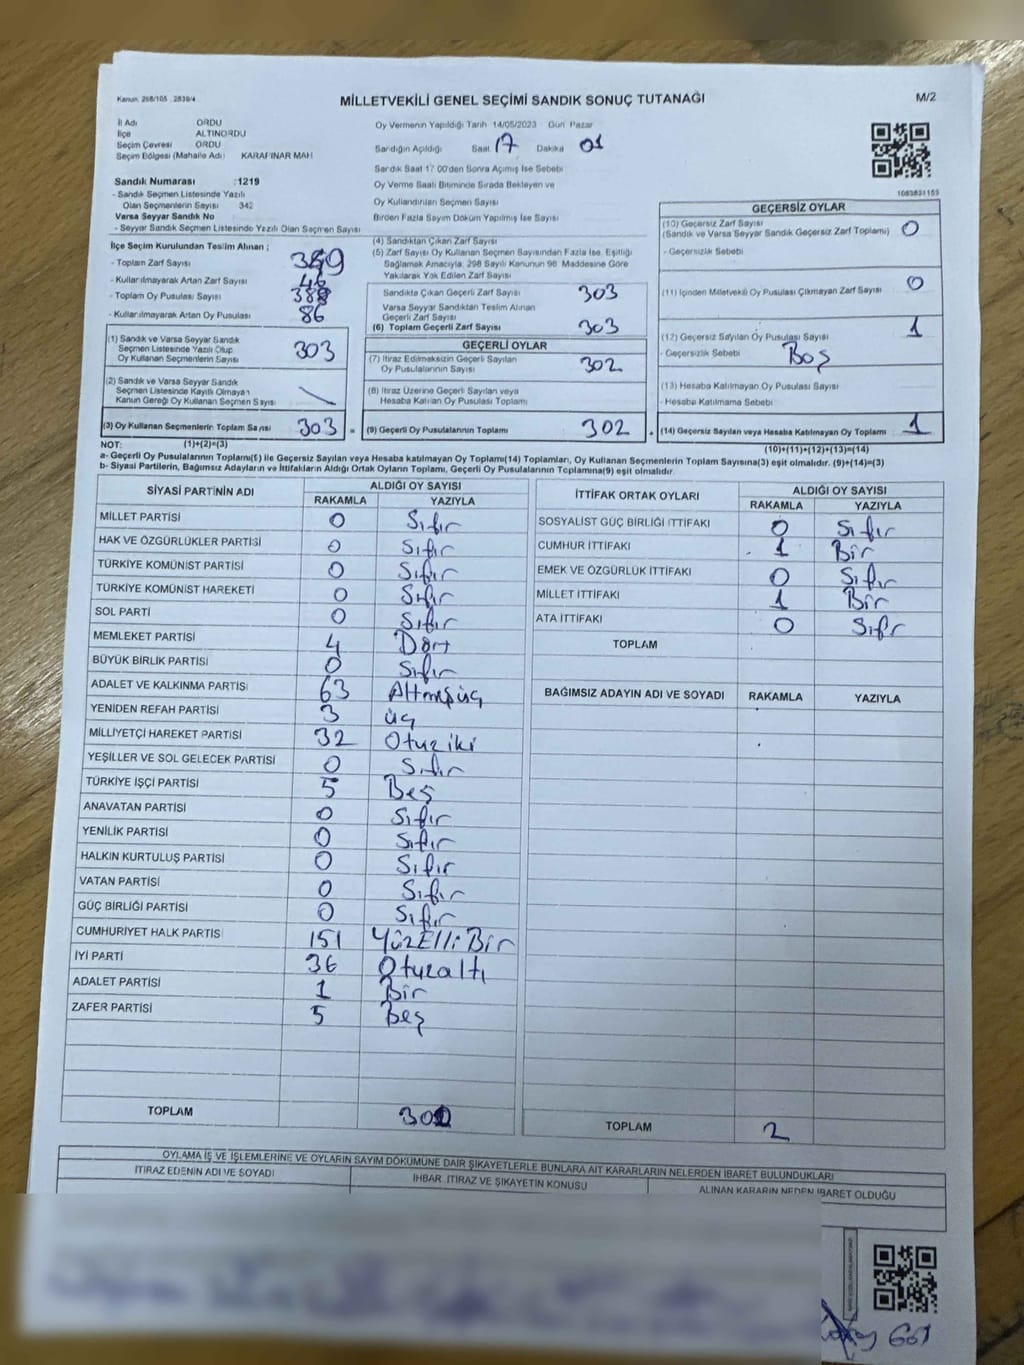 Kanun: 298/105 , 2839/4
MİLLETVEKİLİ GENEL SEÇİMİ SANDIK SONUÇ TUTANAĞI
M/2
İl Adı ORDU
İlçe ALTINORDU
Seçim Çevresi ORDU
Seçim Bölgesi (Mahalle Adı) KARAPINAR MAH
Sandık Numarası :1219
- Sandık Seçmen Listesinde Yazılı
Olan Seçmenlerin Sayısı 342
Varsa Seyyar Sandık No
- Seyyar Sandık Seçmen Listesinde Yazılı Olan Seçmen Sayısı
Oy Vermenin Yapıldığı Tarih 14/05/2023 Gün Pazar
Sandığın Açıldığı Saat 17 Dakika 01
Sandık Saat 17.00'den Sonra Açılmış İse Sebebi
Oy Verme Saati Bitiminde Sırada Bekleyen ve
Oy Kullandırılan Seçmen Sayısı
Birden Fazla Sayım Döküm Yapılmış İse Sayısı
1083831155
İlçe Seçim Kurulundan Teslim Alınan ;
- Toplam Zarf Sayısı
- Kullanılmayarak Artan Zarf Sayısı
- Toplam Oy Pusulası Sayısı
- Kullanılmayarak Artan Oy Pusulası 86
(1) Sandık ve Varsa Seyyar Sandık
Seçmen Listesinde Yazılı Olup
Oy Kullanan Seçmenlerin Sayısı 303
(2) Sandık ve Varsa Seyyar Sandık
Seçmen Listesinde Kayıtlı Olmayan
Kanun Gereği Oy Kullanan Seçmen Sayısı
(3) Oy Kullanan Seçmenlerin Toplam Sayısı 303 =
(4) Sandıktan Çıkan Zarf Sayısı
(5) Zarf Sayısı Oy Kullanan Seçmen Sayısından Fazla İse, Eşitliği
Sağlamak Amacıyla, 298 Sayılı Kanunun 98. Maddesine Göre
Yakılarak Yok Edilen Zarf Sayısı
Sandıkta Çıkan Geçerli Zarf Sayısı 303
Varsa Seyyar Sandıktan Teslim Alınan
Geçerli Zarf Sayısı
(6) Toplam Geçerli Zarf Sayısı 303
GEÇERLİ OYLAR
(7) İtiraz Edilmeksizin Geçerli Sayılan
Oy Pusulalarının Sayısı 302
(8) İtiraz Üzerine Geçerli Sayılan veya
Hesaba Katılan Oy Pusulası Toplamı
(9) Geçerli Oy Pusulalarının Toplamı 302 +
GEÇERSİZ OYLAR
(10) Geçersiz Zarf Sayısı 0
(Sandık ve Varsa Seyyar Sandık Geçersiz Zarf Toplamı)
- Geçersizlik Sebebi
(11) İçinden Milletvekili Oy Pusulası Çıkmayan Zarf Sayısı 0
(12) Geçersiz Sayılan Oy Pusulası Sayısı 1
- Geçersizlik Sebebi Boş
(13) Hesaba Katılmayan Oy Pusulası Sayısı
- Hesaba Katılmama Sebebi
(14) Geçersiz Sayılan veya Hesaba Katılmayan Oy Toplamı 1
NOT: (1)+(2)=(3)
(10)+(11)+(12)+(13)=(14)
a- Geçerli Oy Pusulalarının Toplamı(9) ile Geçersiz Sayılan veya Hesaba Katılmayan Oy Toplamı(14) Toplamları, Oy Kullanan Seçmenlerin Toplam Sayısına(3) eşit olmalıdır. (9)+(14)=(3)
b- Siyasi Partilerin, Bağımsız Adayların ve İttifakların Aldığı Ortak Oyların Toplamı, Geçerli Oy Pusulalarının Toplamına(9) eşit olmalıdır.
SİYASİ PARTİNİN ADI ALDIĞI OY SAYISI
RAKAMLA YAZIYLA
MİLLET PARTİSİ 0 Sıfır
HAK VE ÖZGÜRLÜKLER PARTİSİ 0 Sıfır
TÜRKİYE KOMÜNİST PARTİSİ 0 Sıfır
TÜRKİYE KOMÜNİST HAREKETİ 0 Sıfır
SOL PARTİ 0 Sıfır
MEMLEKET PARTİSİ 4 Dört
BÜYÜK BİRLİK PARTİSİ 0 Sıfır
ADALET VE KALKINMA PARTİSİ 63 Altmışüç
YENİDEN REFAH PARTİSİ 3 üç
MİLLİYETÇİ HAREKET PARTİSİ 32 Otuziki
YEŞİLLER VE SOL GELECEK PARTİSİ 0 Sıfır
TÜRKİYE İŞÇİ PARTİSİ 5 Beş
ANAVATAN PARTİSİ 0 Sıfır
YENİLİK PARTİSİ 0 Sıfır
HALKIN KURTULUŞ PARTİSİ 0 Sıfır
VATAN PARTİSİ 0 Sıfır
GÜÇ BİRLİĞİ PARTİSİ 0 Sıfır
CUMHURİYET HALK PARTİSİ 151 YüzElliBir
İYİ PARTİ 36 Otuzaltı
ADALET PARTİSİ 1 Bir
ZAFER PARTİSİ 5 Beş
TOPLAM
İTTİFAK ORTAK OYLARI ALDIĞI OY SAYISI
RAKAMLA YAZIYLA
SOSYALİST GÜÇ BİRLİĞİ İTTİFAKI 0 Sıfır
CUMHUR İTTİFAKI 1 Bir
EMEK VE ÖZGÜRLÜK İTTİFAKI 0 Sıfır
MİLLET İTTİFAKI 1 Bir
ATA İTTİFAKI 0 Sıfr
TOPLAM
BAĞIMSIZ ADAYIN ADI VE SOYADI RAKAMLA YAZIYLA
TOPLAM 2
OYLAMA İŞ VE İŞLEMLERİNE VE OYLARIN SAYIM DÖKÜMÜNE DAİR ŞİKAYETLERLE BUNLARA AİT KARARLARIN NELERDEN İBARET BULUNDUKLARI
İTİRAZ EDENİN ADI VE SOYADI İHBAR, İTİRAZ VE ŞİKAYETİN KONUSU ALINAN KARARIN NEDEN İBARET OLDUĞU